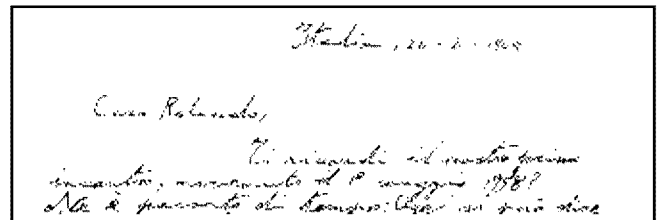 Italia, 20-2-
Caro Rolando,
Ti ricordi il nostro primo
incontro, avvenuto il 1° maggio 1958?
Ne è passato di tempo! si può dire